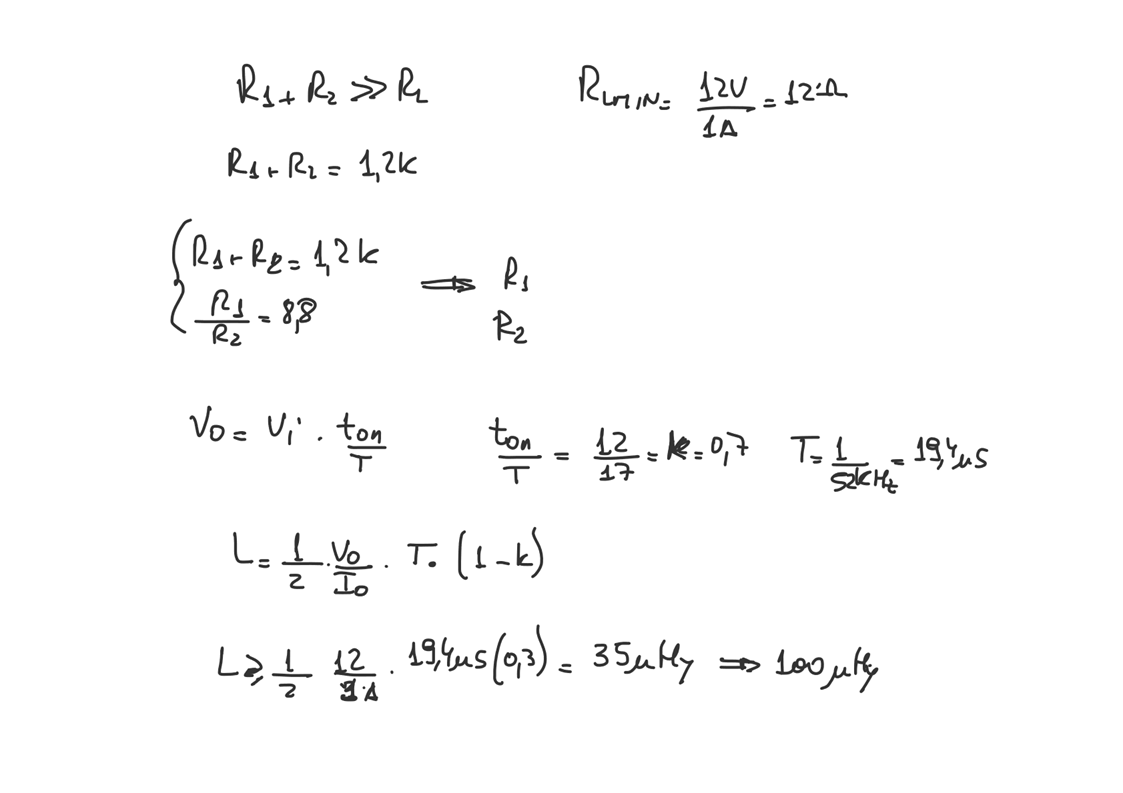 R1 + R2 >> RL RLMIN = 12V/1A = 12Ω
R1 + R2 = 1,2k
{ R1 + R2 = 1,2k ⟹ R1
R1/R2 = 8,8 R2
Vo = Vi · ton/T ton/T = 12/17 = k = 0,7 T = 1/52kHz = 19,4μs
L = 1/2 · Vo/Io · T · (1 - k)
L ≥ 1/2 12/1A · 19,4μs (0,3) = 35μHy ⟹ 100μHy